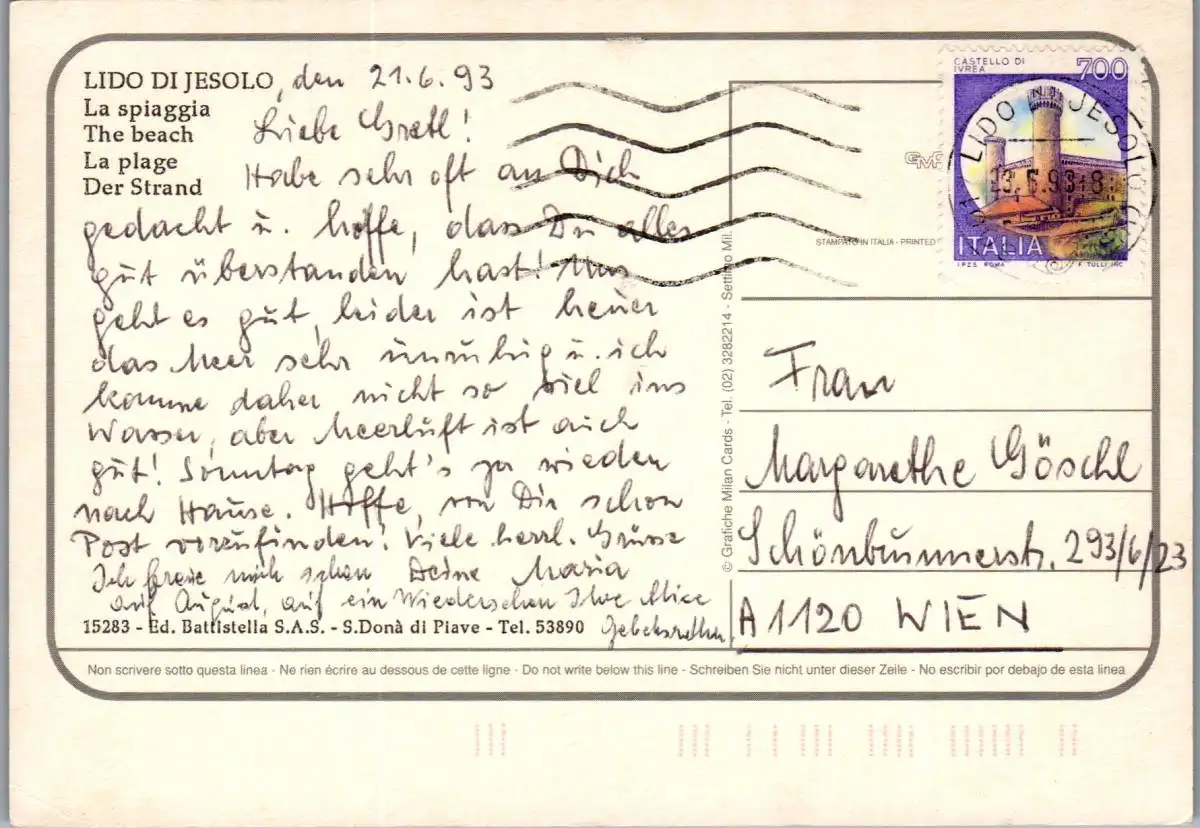 LIDO DI JESOLO, den 21.6.93
La spiaggia
The beach
La plage
Der Strand
Liebe Gretl!
Habe sehr oft an Dich
gedacht u. hoffe, dass Du alles
gut überstanden hast! Uns
geht es gut, leider ist heuer
das Meer sehr unruhig u. ich
komme daher nicht so viel ins
Wasser, aber Meerluft ist auch
gut! Sonntag geht's ja wieder
nach Hause. Hoffe, von Dir schon
Post vorzufinden! Viele herzl. Grüsse
Deine Maria
Ich freue mich schon
auf August, auf ein Wiedersehen Ihre
15283 - Ed. Battistella S.A.S. - S.Donà di Piave - Tel. 53890
© Grafiche Milan Cards - Tel. (02) 3282214 - Settimo Mil.
STAMPATO IN ITALIA - PRINTED
CASTELLO DI
IVREA
700
ITALIA
I.P.Z.S. ROMA
F. TULLI INC.
LIDO DI JESOLO
Frau
Margarethe Göschl
Schönbrunnerstr. 293/6/23
A 1120 WIEN
Non scrivere sotto questa linea - Ne rien écrire au dessous de cette ligne - Do not write below this line - Schreiben Sie nicht unter dieser Zeile - No escribir por debajo de esta linea